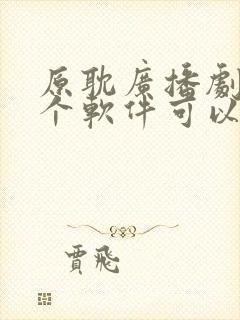 原耽廣播劇
个軟件可以
賈飛